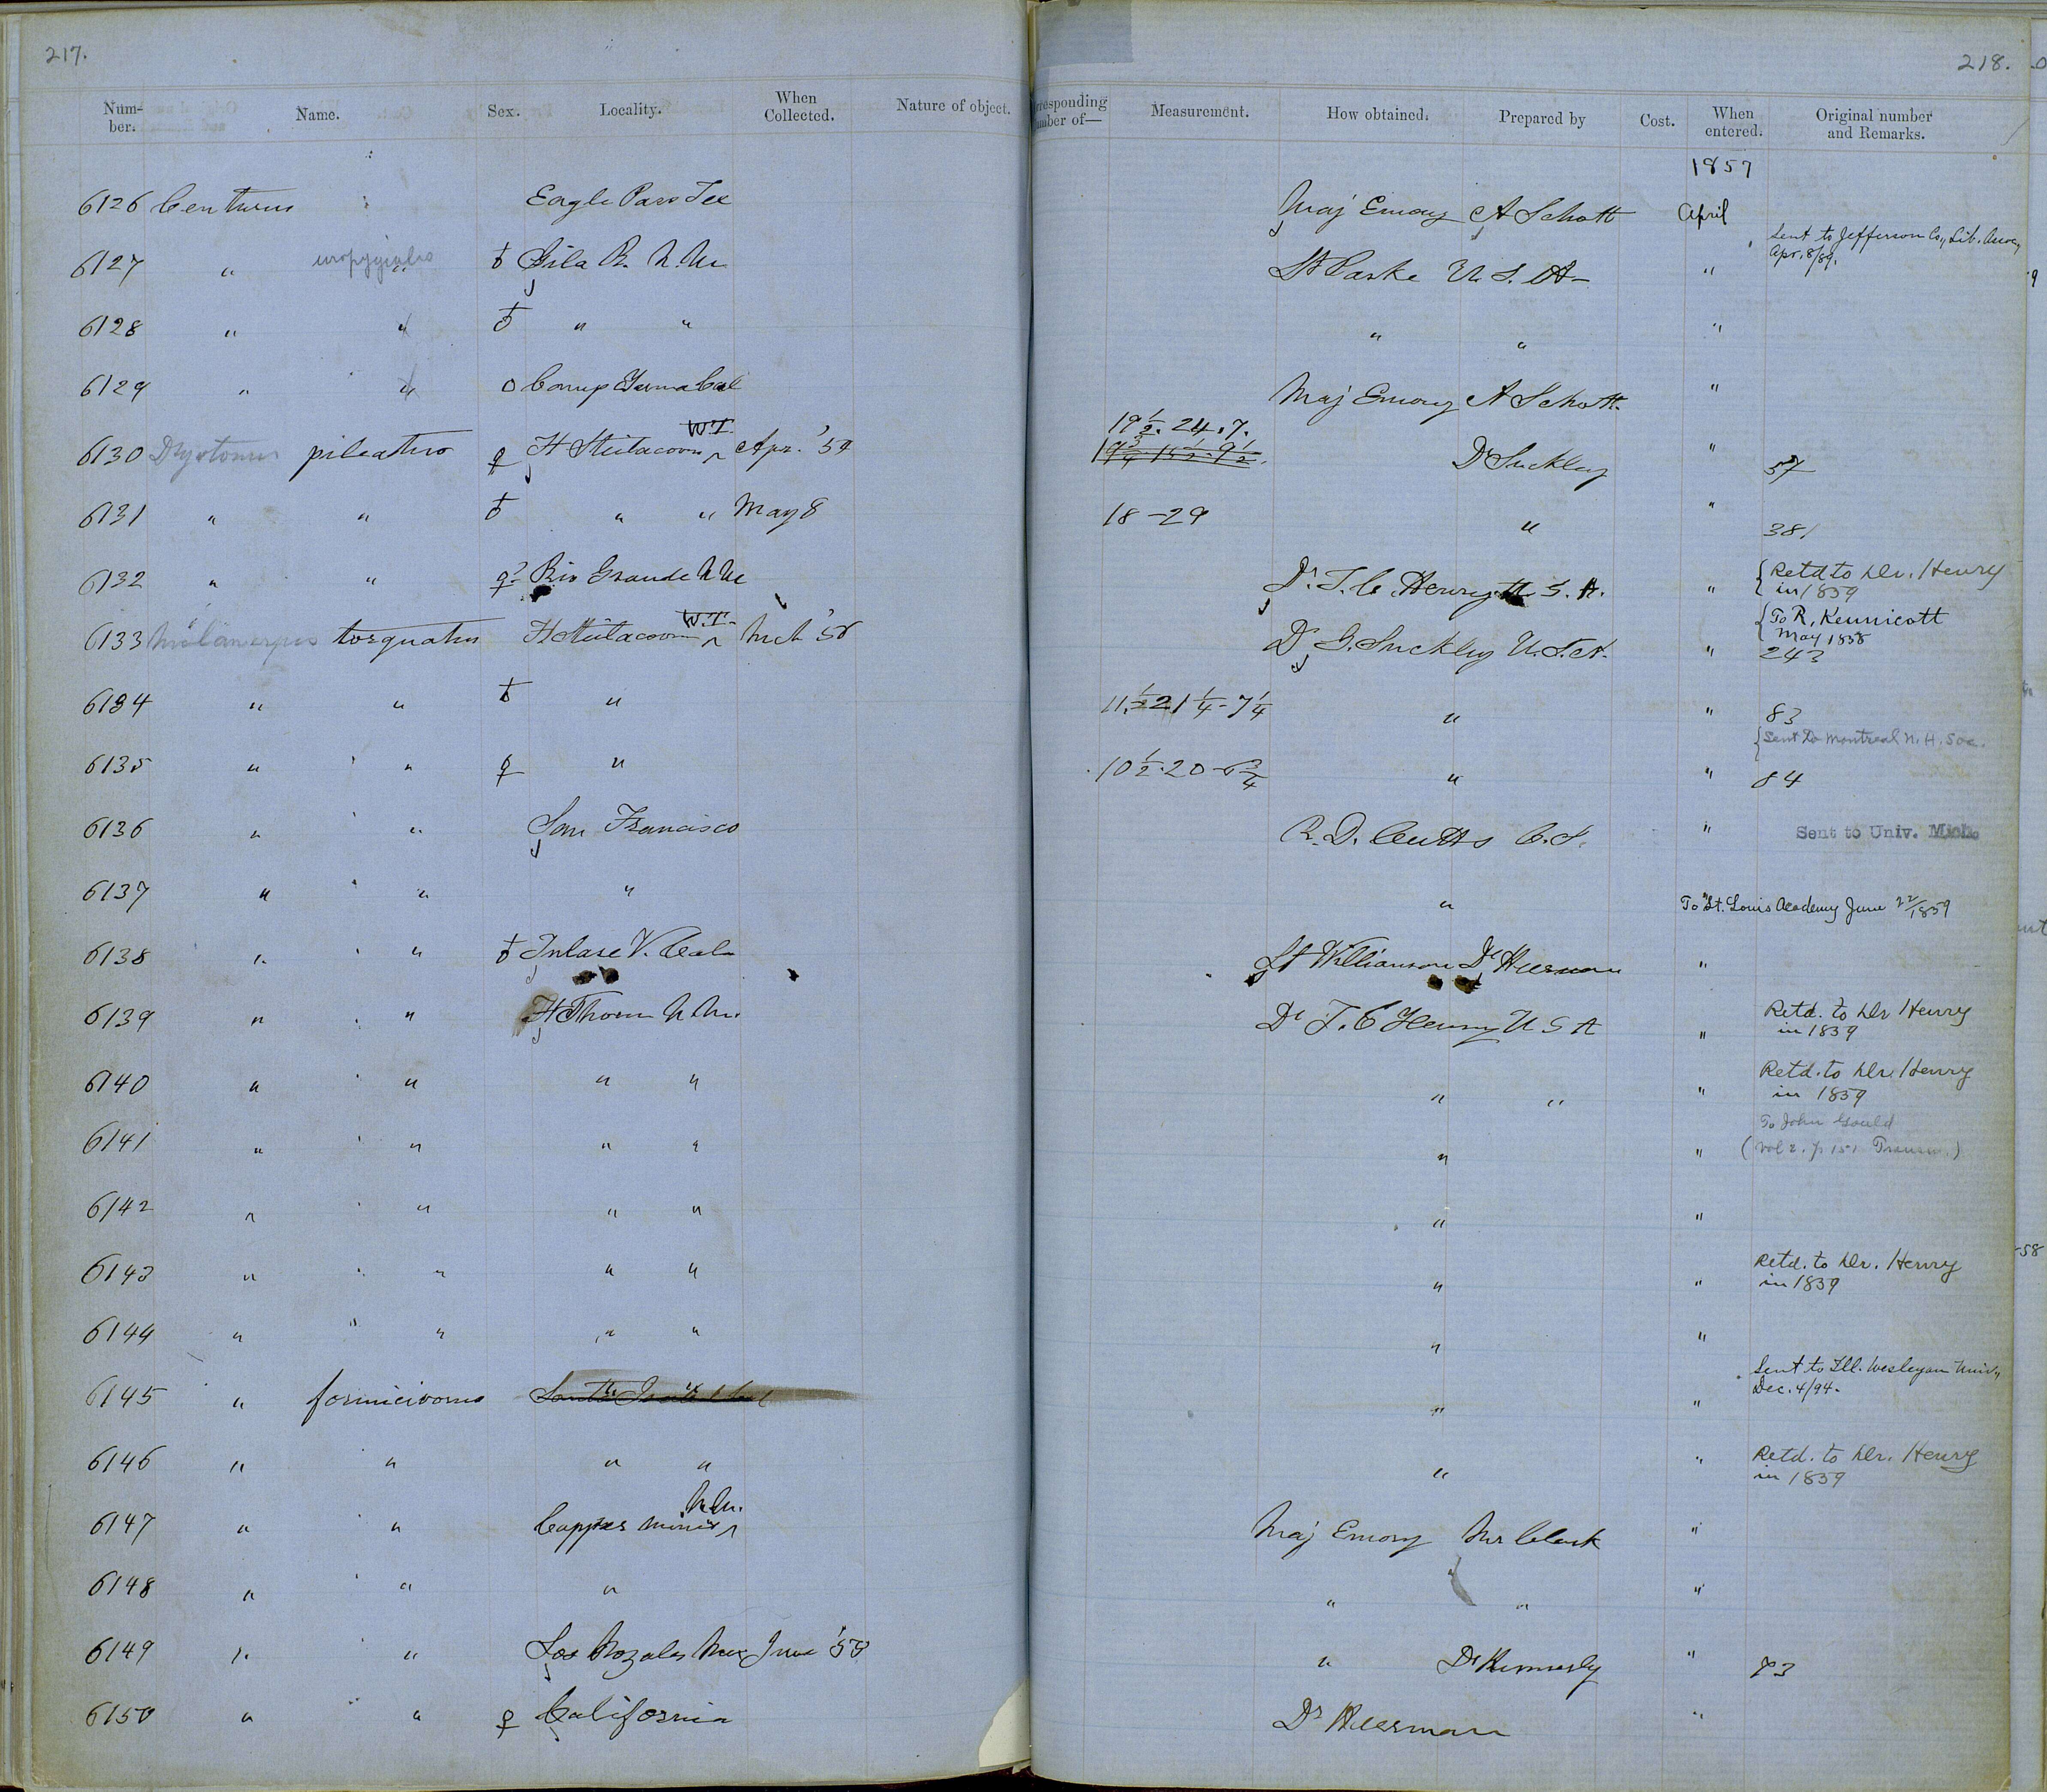 217.
218.
Num-ber. Name. Sex. Locality. When Collected. Nature of object. rresponding umber of— Measurement. How obtained. Prepared by Cost. When entered. Original number and Remarks.
1857
6126 Centurus Eagle Pass Tex Maj Emory A Schott April
6127 " uropygialis " ♂ Gila R. N. M. Lt Parke U. S. A— " Sent to Jefferson Co., Lib. Assoc, Apr. 8/89.
6128 " " ♂ " " " " "
6129 " " O Camp Yuma Cal Maj Emory A Schott. "
6130 Dryotomus pileatus ♀ Ft Steilacoom W.T. Apr. 19 1/2. 24. 7. Dr Suckley " 57
6131 " " ♂ " " May 8 18 – 29 " " 381
6132 " " ♀? Rio Grande N M Dr. T. C. Henry U. S. A. " { Retd to Dr. Henry in 1859
6133 Melanerpes torquatus Ft Steilacoom W.T. Mch Dr G. Suckley U. S. A. " { To R. Kennicott May 1858 243
6134 " " ♂ " 11 1/2 21 1/4 - 7 1/4 " " 83
6135 " " ♀ " 10 1/2. 20 - 6 3/4 " " { Sent to Montreal N. H. Soc. 84
6136 " " San Francisco R. D. Cutts C. S. " Sent to Univ. Mich.
6137 " " " " " To St. Louis Academy June 22/1859
6138 " " ♂ Tulare V. Cala Lt Williamson Dr Heerman "
6139 " " Ft Thorn N. M. Dr T. C Henry U S A " Retd. to Dr Henry in 1859
6140 " " " " " " " Retd. to Dr. Henry in 1859
6141 " " " " " " To John Gould (Vol 2. p 151 Transm.)
6142 " " " " " "
6143 " " " " " " Retd. to Dr. Henry in 1859
6144 " " " " " "
6145 " formicivorus " " Sent to Ill. Wesleyan Univ., Dec. 4/94.
6146 " " " " " " Retd. to Dr. Henry in 1859
6147 " " Copper mines N. M. Maj Emory Mr Clark "
6148 " " " " " "
6149 " " Los Nogales Mex June " Dr Kennerly "
6150 " " ♀ California Dr Heerman "